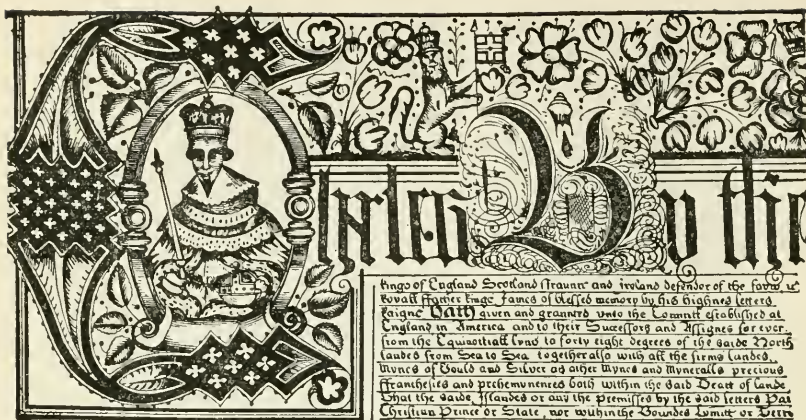 Charles By the
Kinge of England Scotland ffraunce and Ireland defendor of the fayth, &c
Royall ffather Kinge James of blessed memory by his highnes letters
Raigne Hath given and graunted vnto the Councell established at
England in America and to their Successors and Assignes for ever
from the Equinoctiall lyne to forty eight degrees of the saide North
landes from Sea to Sea together also with all the firme landes
Mynes of Gould and Silver as other Mynes and Myneralls precious
ffranchesies and prehemynences both within the said Tract of Lande
That the saide Islandes or any the premisses by the said letters Pat
Christian Prince or State, nor within the Boundes Lymitts or Terr